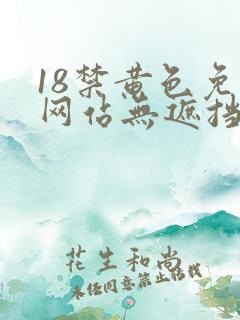 18禁黄色免
网占無遮挡
花生和尚
未经同意禁止转载